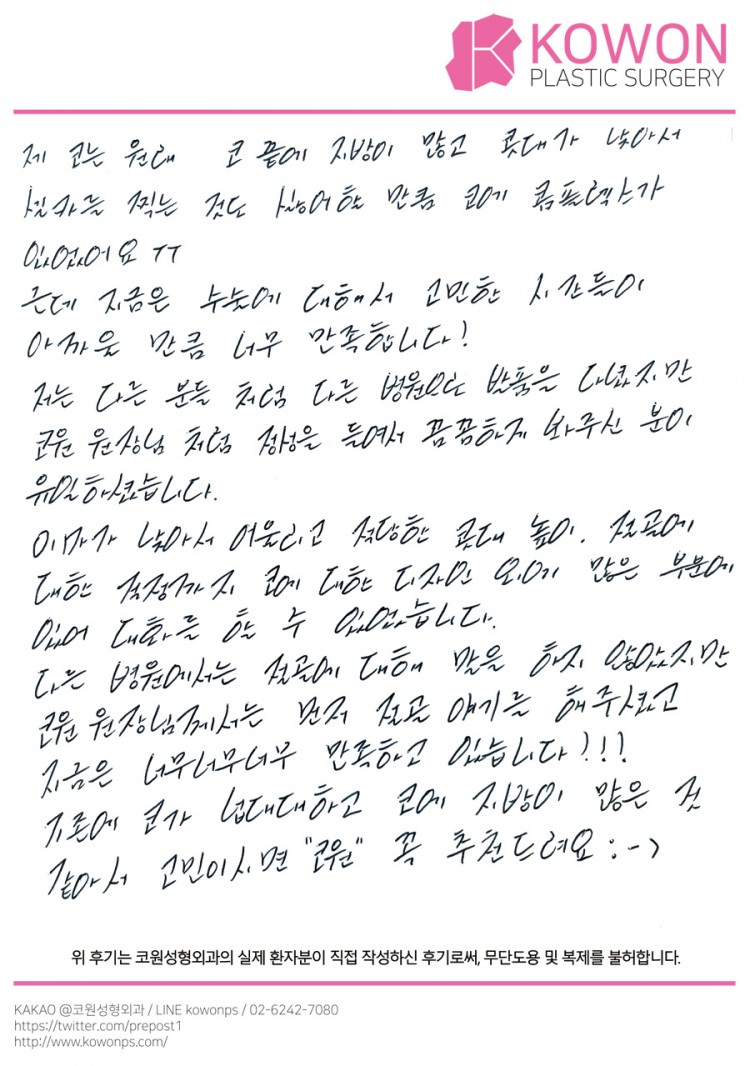 KOWON
PLASTIC SURGERY
제 코는 원래 코 끝에 지방이 많고 콧대가 낮아서
사진을 찍는 것도 싫어할 만큼 코에 콤플렉스가
있었어요 ㅠㅠ
근데 지금은 수술에 대해서 고민한 시간들이
아까울 만큼 너무 만족합니다!
저는 다른 분들 처럼 다른 병원으로 발품을 다녔지만
코원 원장님 처럼 정성을 들여서 꼼꼼하게 봐주신 분이
유일하셨습니다.
이마가 낮아서 어울리고 적당한 콧대 높이. 절골에
대한 걱정까지 코에 대한 디자인 외에 많은 부분에
있어 대화를 할 수 있었습니다.
다른 병원에서는 절골에 대해 말을 하지 않았지만
코원 원장님께서는 먼저 절골 얘기를 해주셨고
지금은 너무너무너무 만족하고 있습니다!!!
기존에 코가 넙대대하고 코에 지방이 많은 것
같아서 고민이시면 "코원" 꼭 추천드려요 :->
위 후기는 코원성형외과의 실제 환자분이 직접 작성하신 후기로써, 무단도용 및 복제를 불허합니다.
KAKAO @코원성형외과 / LINE kowonps / 02-6242-7080
https://twitter.com/prepost1
http://www.kowonps.com/